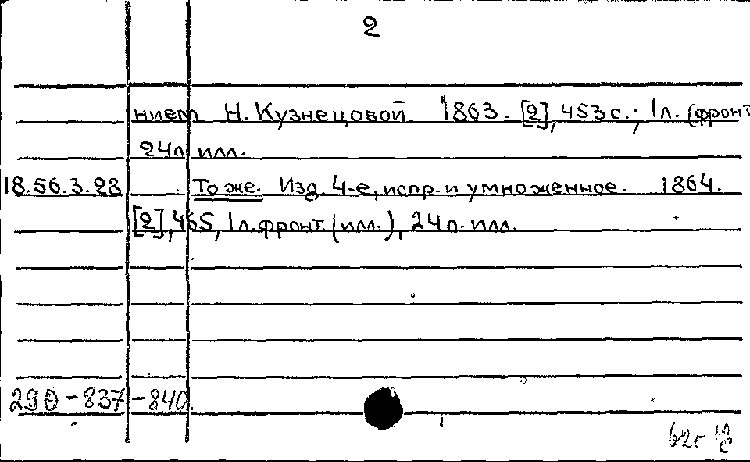 2
нием Н. Кузнецовой 1863. [2], 453 с.; 1 л. (фронт
24 л илл.
18.56.3.28 То же. Изд. 4-е, испр. и умноженное. 1864.
[2], 465, 1 л. фронт. (илл.), 24 л. илл.
290-837-840